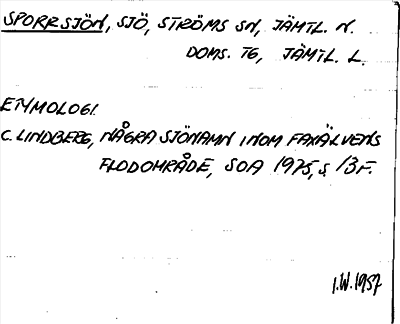 SPORRSJÖN, SJÖ, STRÖMS SN, JÄMTL. N.
DOMS. TG, JÄMTL. L.
ETYMOLOGI.
C. LINDBERG, NÅGRA SJÖNAMN INOM FAXÄLVENS
FLODOMRÅDE, SOA 1975, S. 13 F.
I.W. 1957